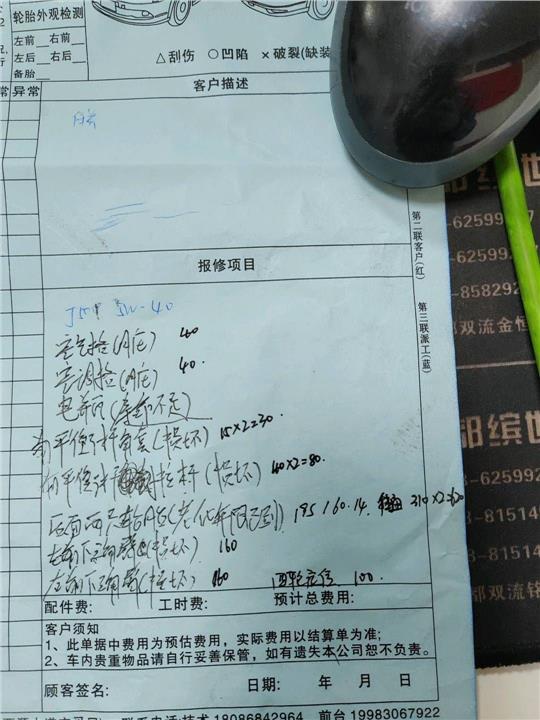 轮胎外观检测
左前__右前__
左后__右后__
备胎__
△刮伤 ○凹陷 ×破裂(缺装
常 异常
客户描述
第二联客户(红)
第三联派工(蓝)
报修项目
5W-40
空气格(脏) 40
空调格(脏) 40.
电瓶(寿命不足)
前平衡杆胶套(损坏) 15×2=30.
前平衡杆拉杆(损坏) 40×2=80.
后面两只轮胎(老化年限已到) 195/60.14. 310×2=620
右前下三角臂(损坏) 160
左前下三角臂(损坏) 160 四轮定位 100.
配件费: 工时费: 预计总费用:
客户须知
1、此单据中费用为预估费用，实际费用以结算单为准;
2、车内贵重物品请自行妥善保管，如有遗失本公司恕不负责。
顾客签名: 日期: 年 月 日
联系电话:技术18086842964 前台19983067922
都缤世
-6259927
-858292
都双流金恒
都缤世
-6259927
-81514
-81514
都双流铭